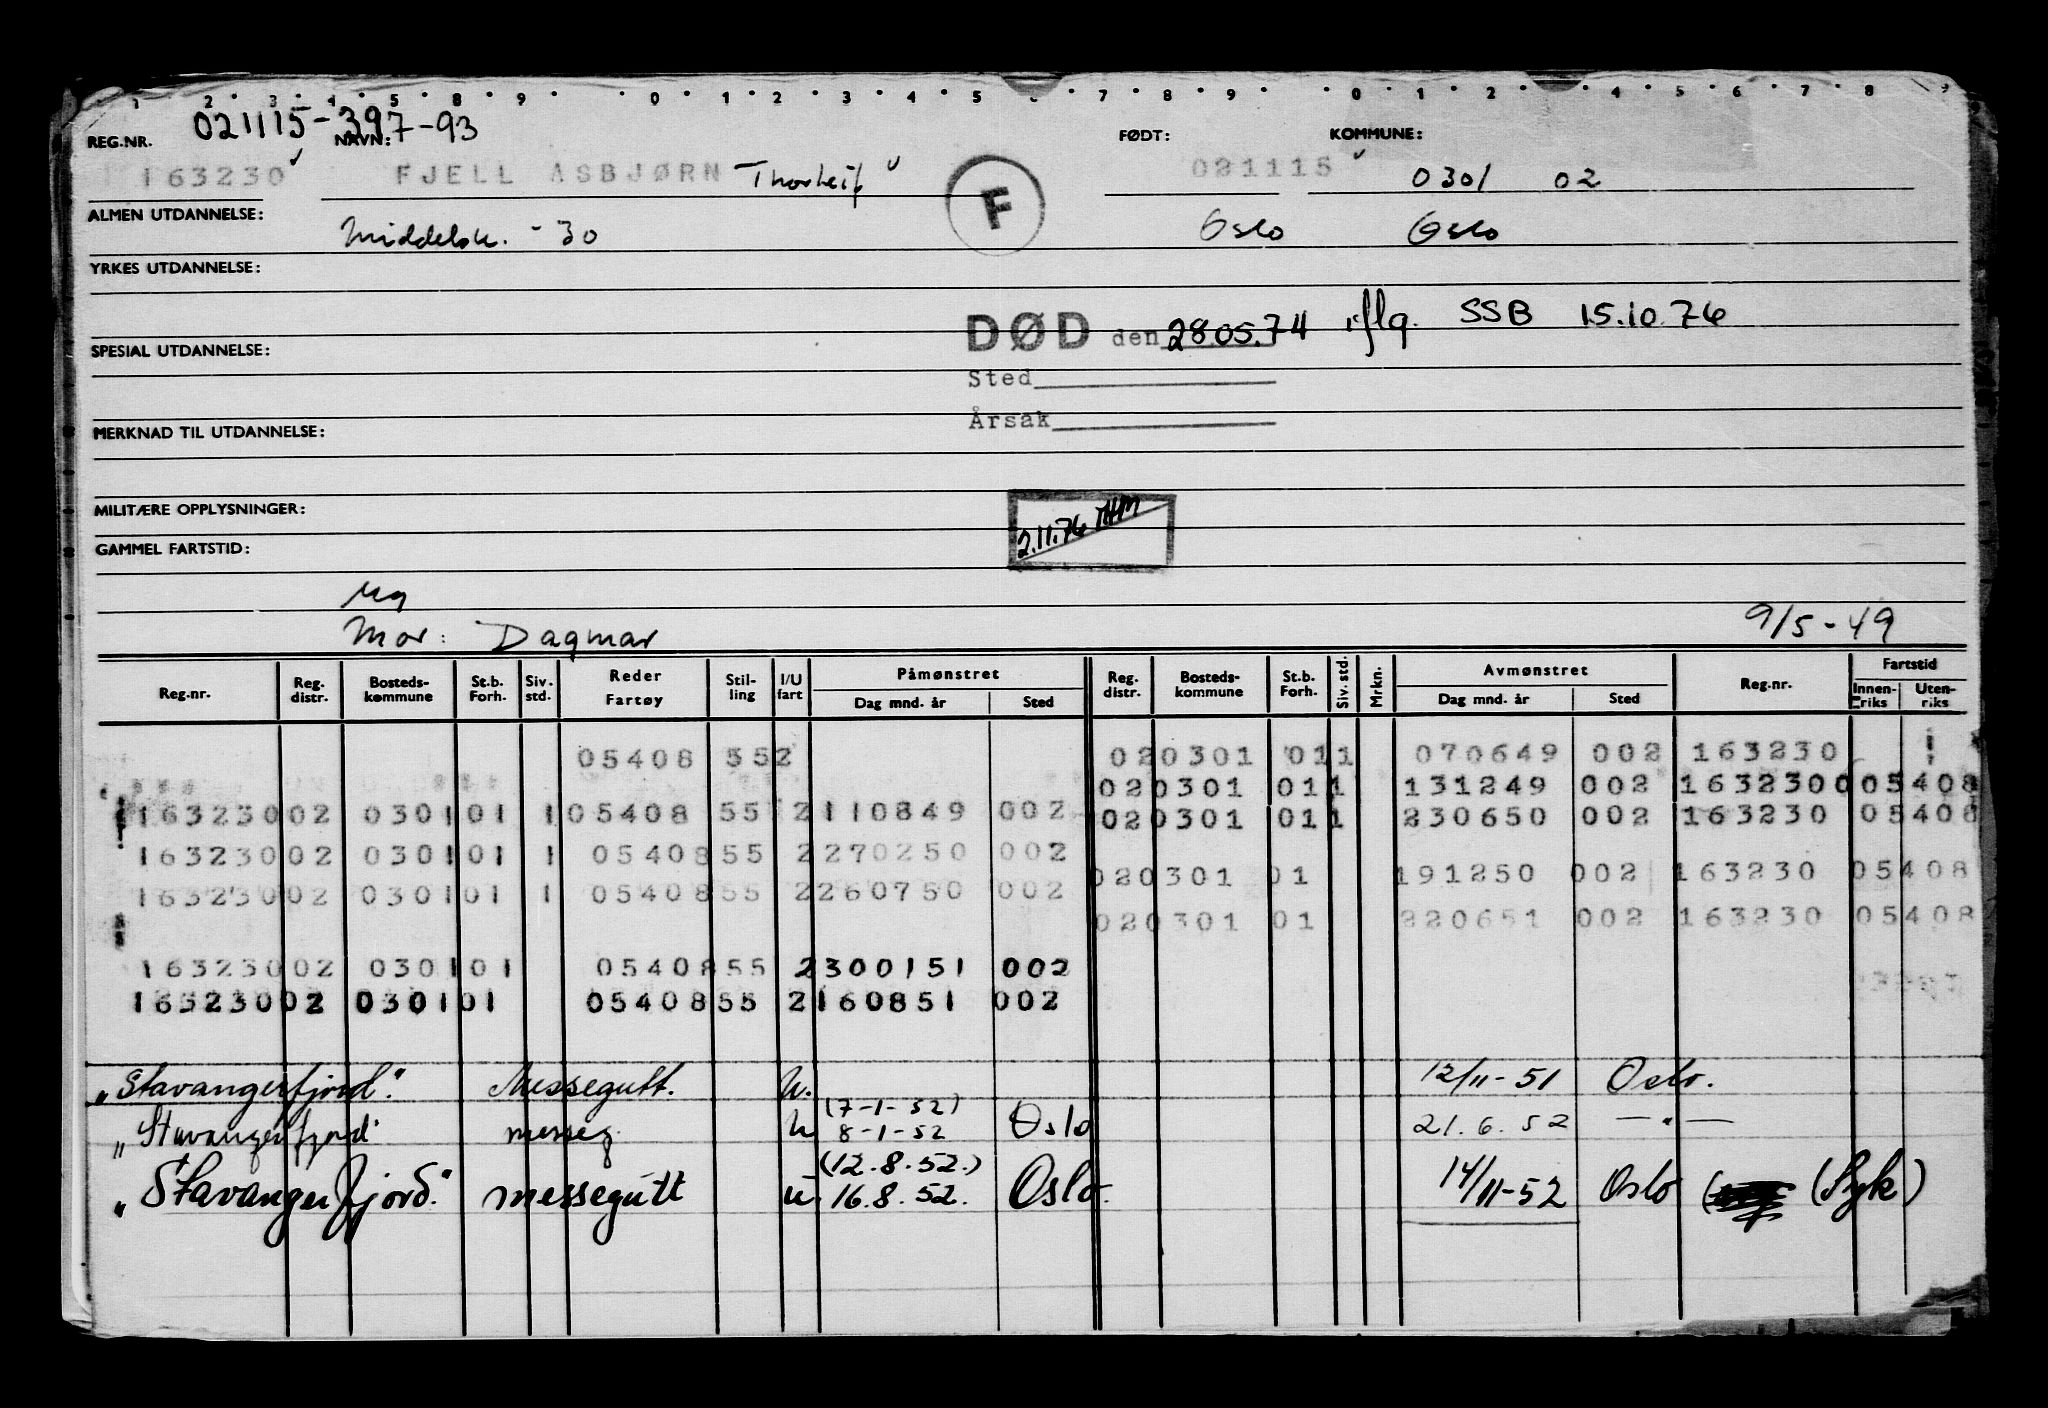 1 2 3 4 5 8 9 0 1 2 3 4 5 7 8 9 0 1 2 4 5 6 7 8
021115-397-93
REG.NR. NAVN: FØDT: KOMMUNE:
163230 FJELL ASBJØRN Thorleif F 021115 0301 02
ALMEN UTDANNELSE: Middelsk. -30 Oslo Oslo
YRKES UTDANNELSE:
DØD den 28.05.74 iflg. SSB 15.10.76
SPESIAL UTDANNELSE:
Sted
Årsak
MERKNAD TIL UTDANNELSE:
MILITÆRE OPPLYSNINGER:
2.11.76 HM
GAMMEL FARTSTID:
Ug
Mor: Dagmar 9/5-49
Reg.nr. Reg. distr. Bosteds-kommune St.b. Forh. Siv. std. Reder Fartøy Stil-ling I/U fart Påmønstret Dag mnd. år Sted Reg. distr. Bosteds-kommune St.b. Forh. Siv. std. Mrkn. Avmønstret Dag mnd. år Sted Reg.nr. Fartstid Innen-riks Uten-riks
05408 552 020301 011 070649 002 163230
020301 011 131249 002 163230 005408
163230 02 0301 01 1 05408 55 2 110849 002 020301 011 230650 002 163230 05408
163230 02 0301 01 1 05408 55 2 270250 002
020301 01 191250 002 163230 05408
163230 02 0301 01 1 05408 55 2 260750 002
020301 01 220651 002 163230 05408
163230 02 0301 01 05408 55 2 300151 002
163230 02 0301 01 05408 55 2 160851 002
„Stavangerfjord." Messegutt. U. 12/11-51 Oslo.
(7-1-52)
„Stavangerfjord" messeg. U 8-1-52 Oslo 21.6.52 —"—
(12.8.52.)
„Stavangerfjord." messegutt u. 16.8.52. Oslo. 14/11-52 Oslo (Syk)